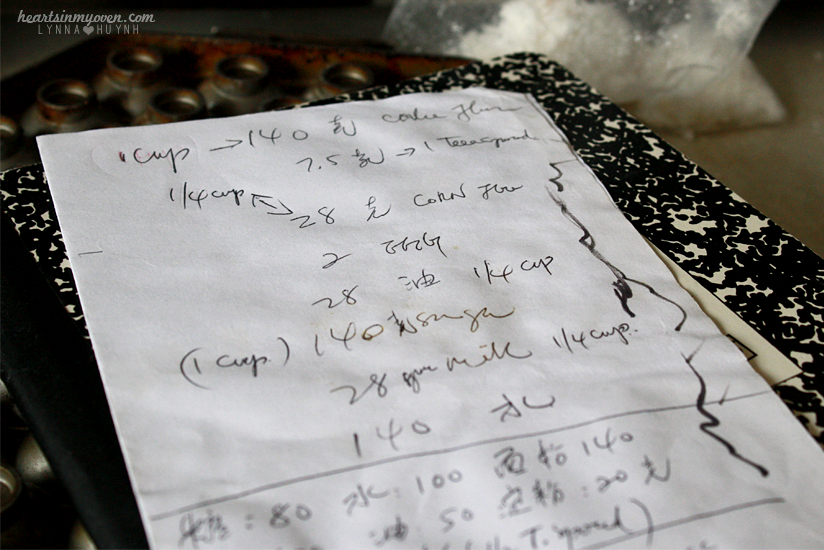 heartsinmyoven.com
LYNNA HUYNH
1 cup → 140 克 cake flour
7.5 克 → 1 Teaspoond
1/4 cup 28 克 CORN flour
2 EGG
28 油 1/4 cup
(1 cup.) 140 克 sugar
28 gm milk 1/4 cup.
140 水
糖: 80 水: 100 面粉 140
油 50 豆粉: 20 克